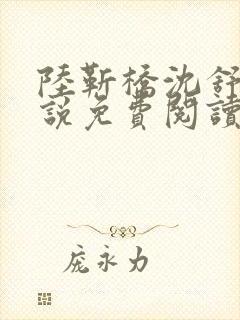 陸靳橋沈舒
說免費閱讀
庞永力